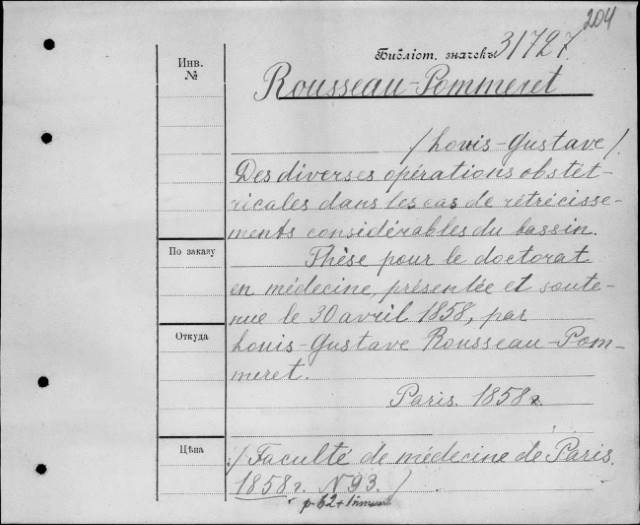 204
Библіот. значекъ 31727
Инв.
№
Rousseau-Pommeret
/Louis-Gustave/.
Des diverses opérations obstét-
ricales dans les cas de rétrécisse-
ments considérables du bassin.
По заказу
Thèse pour le doctorat
en médecine, présentée et soute-
nue le 30 avril 1858, par
Откуда
Louis-Gustave Rousseau-Pom-
meret.
Paris. 1858 г.
Цѣна
/Faculté de médecine de Paris.
1858 г. N 93./
p. 62+1